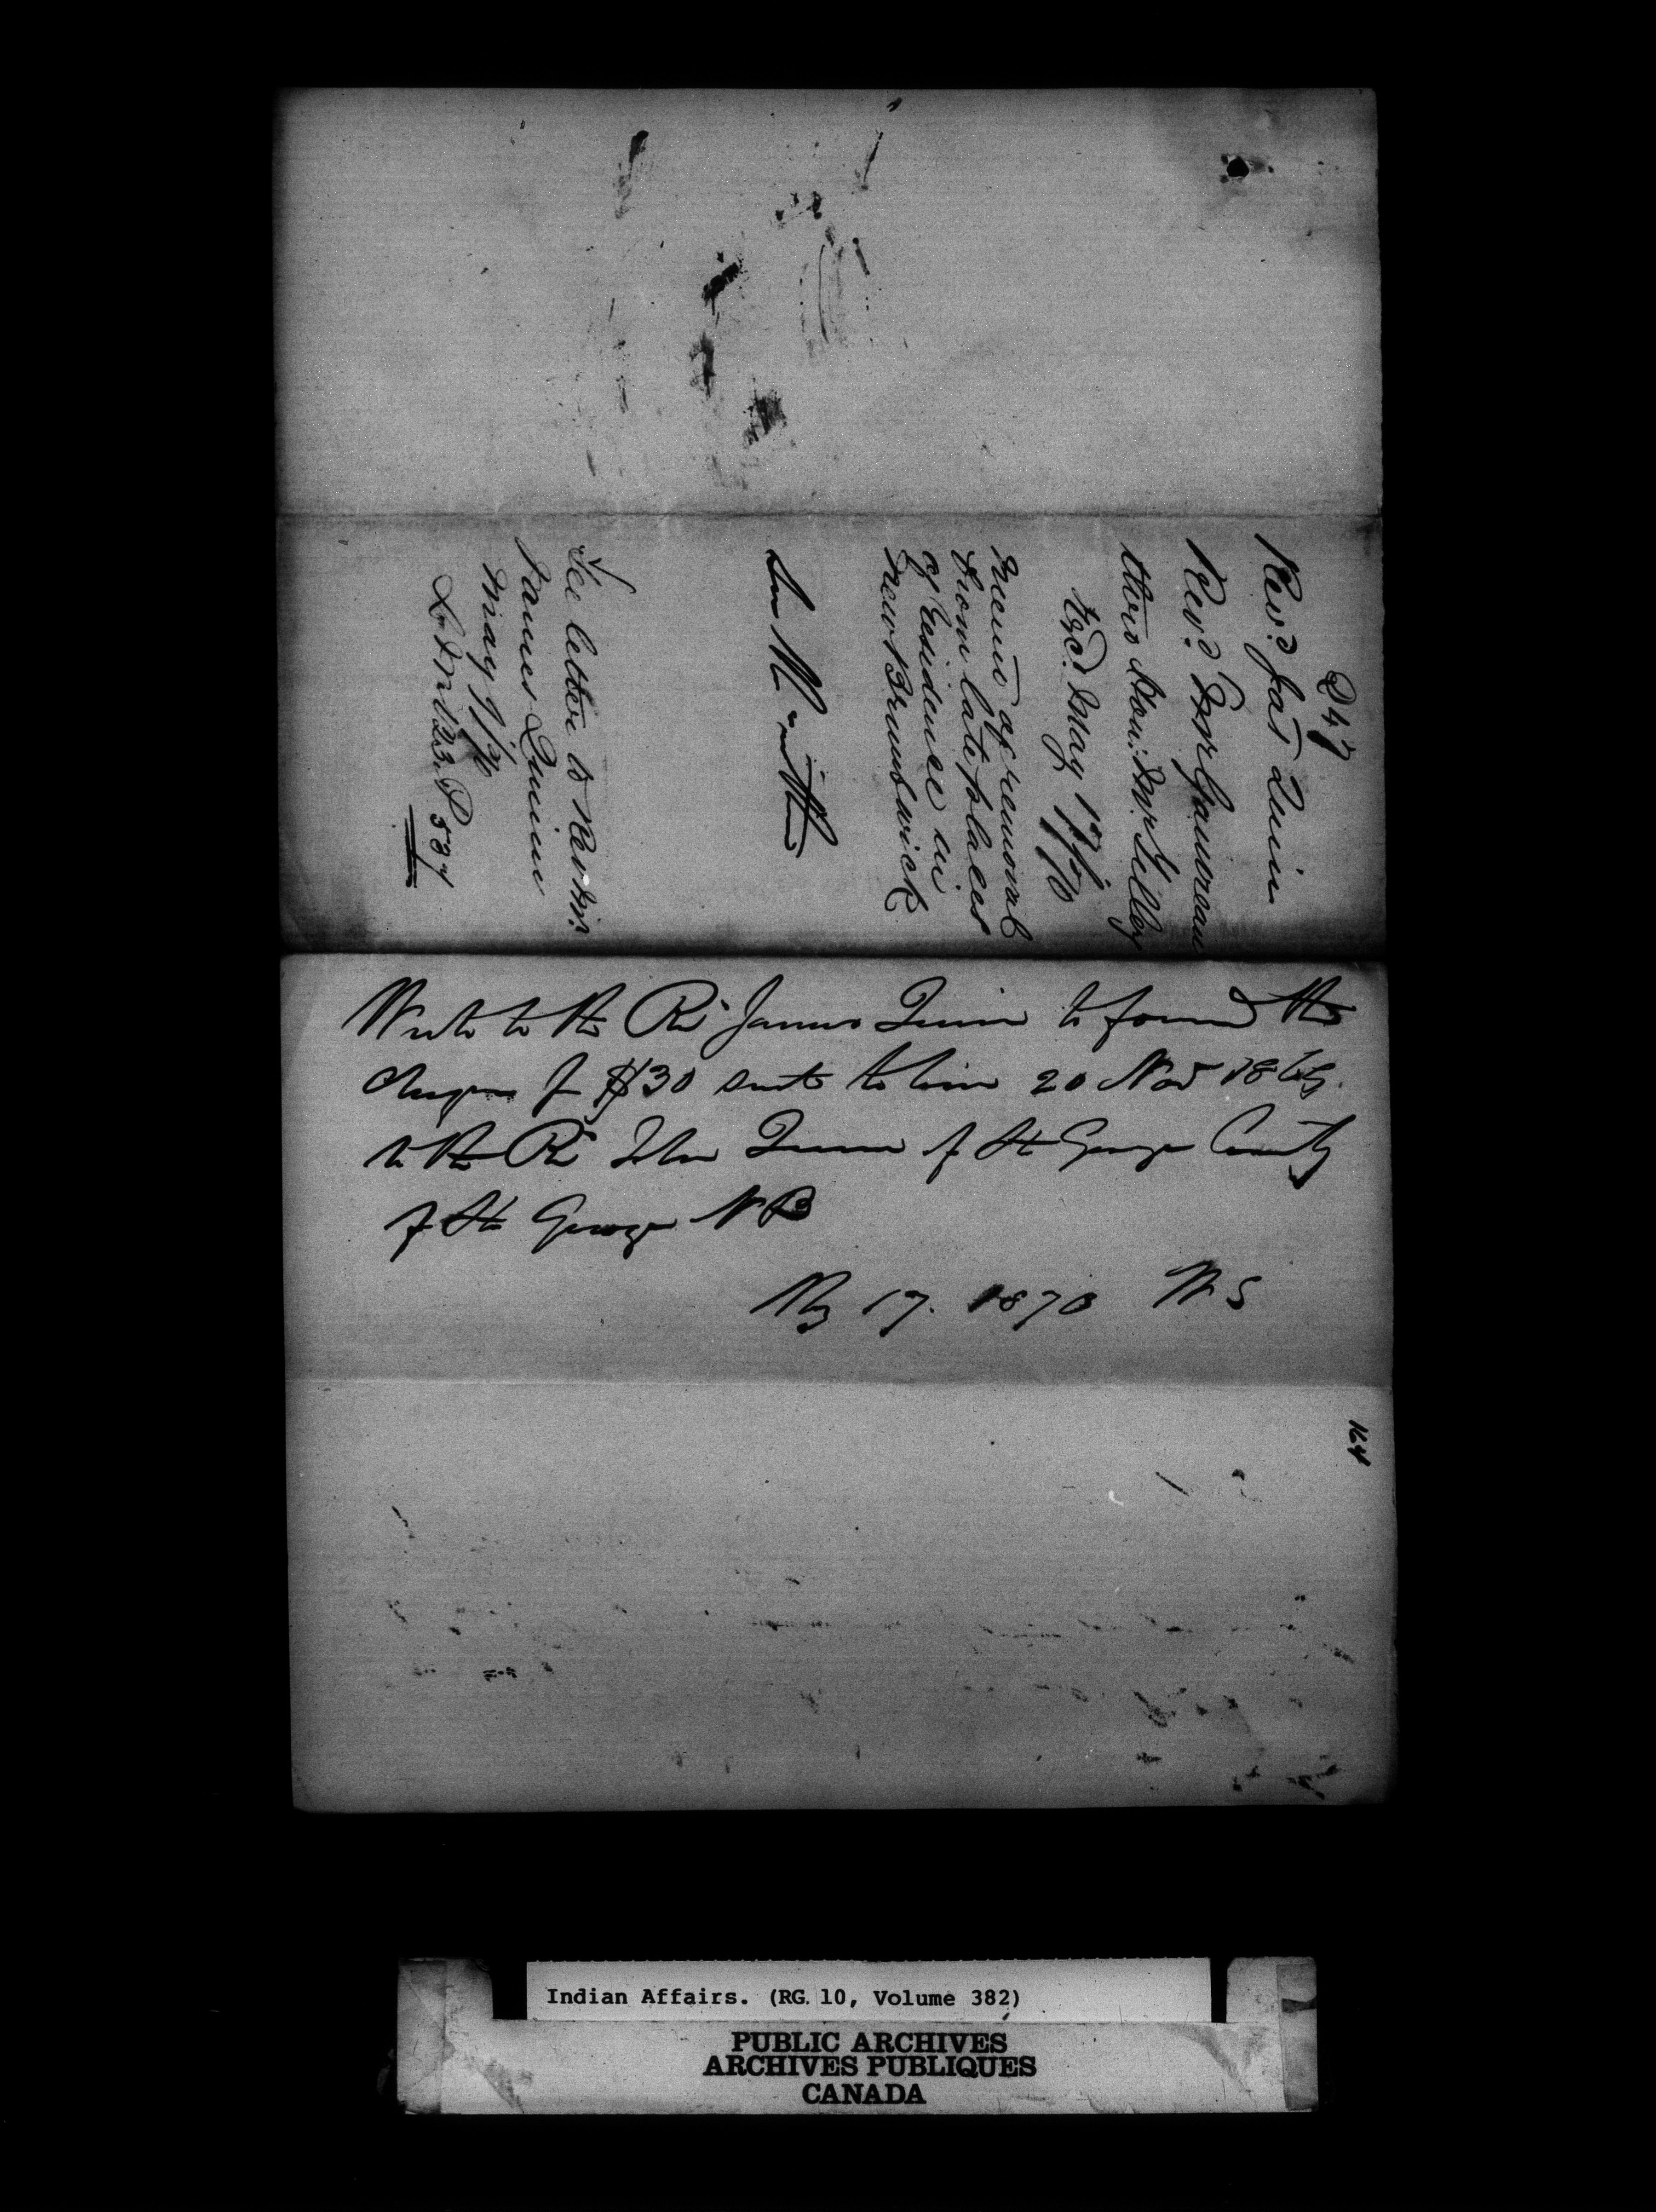 D 47
Revd. Jas Quin
Revd. Mr Gauvreau
thro Hon: Mr Tilley
Recd. May 17/70
Mem of removal
from late places
of residence in
New Brunswick
See letter to Revd Mr.
James Quinn
May 17/70
L B No 23. P 537
Write to the Rev James Quinn to forward the
cheque of $30 sent to him 20 Nov 1869.
to the Rev John Quinn of St George County
of St George N B
May 17. 1870 W S
164
Indian Affairs. (RG. 10, Volume 382)
PUBLIC ARCHIVES
ARCHIVES PUBLIQUES
CANADA